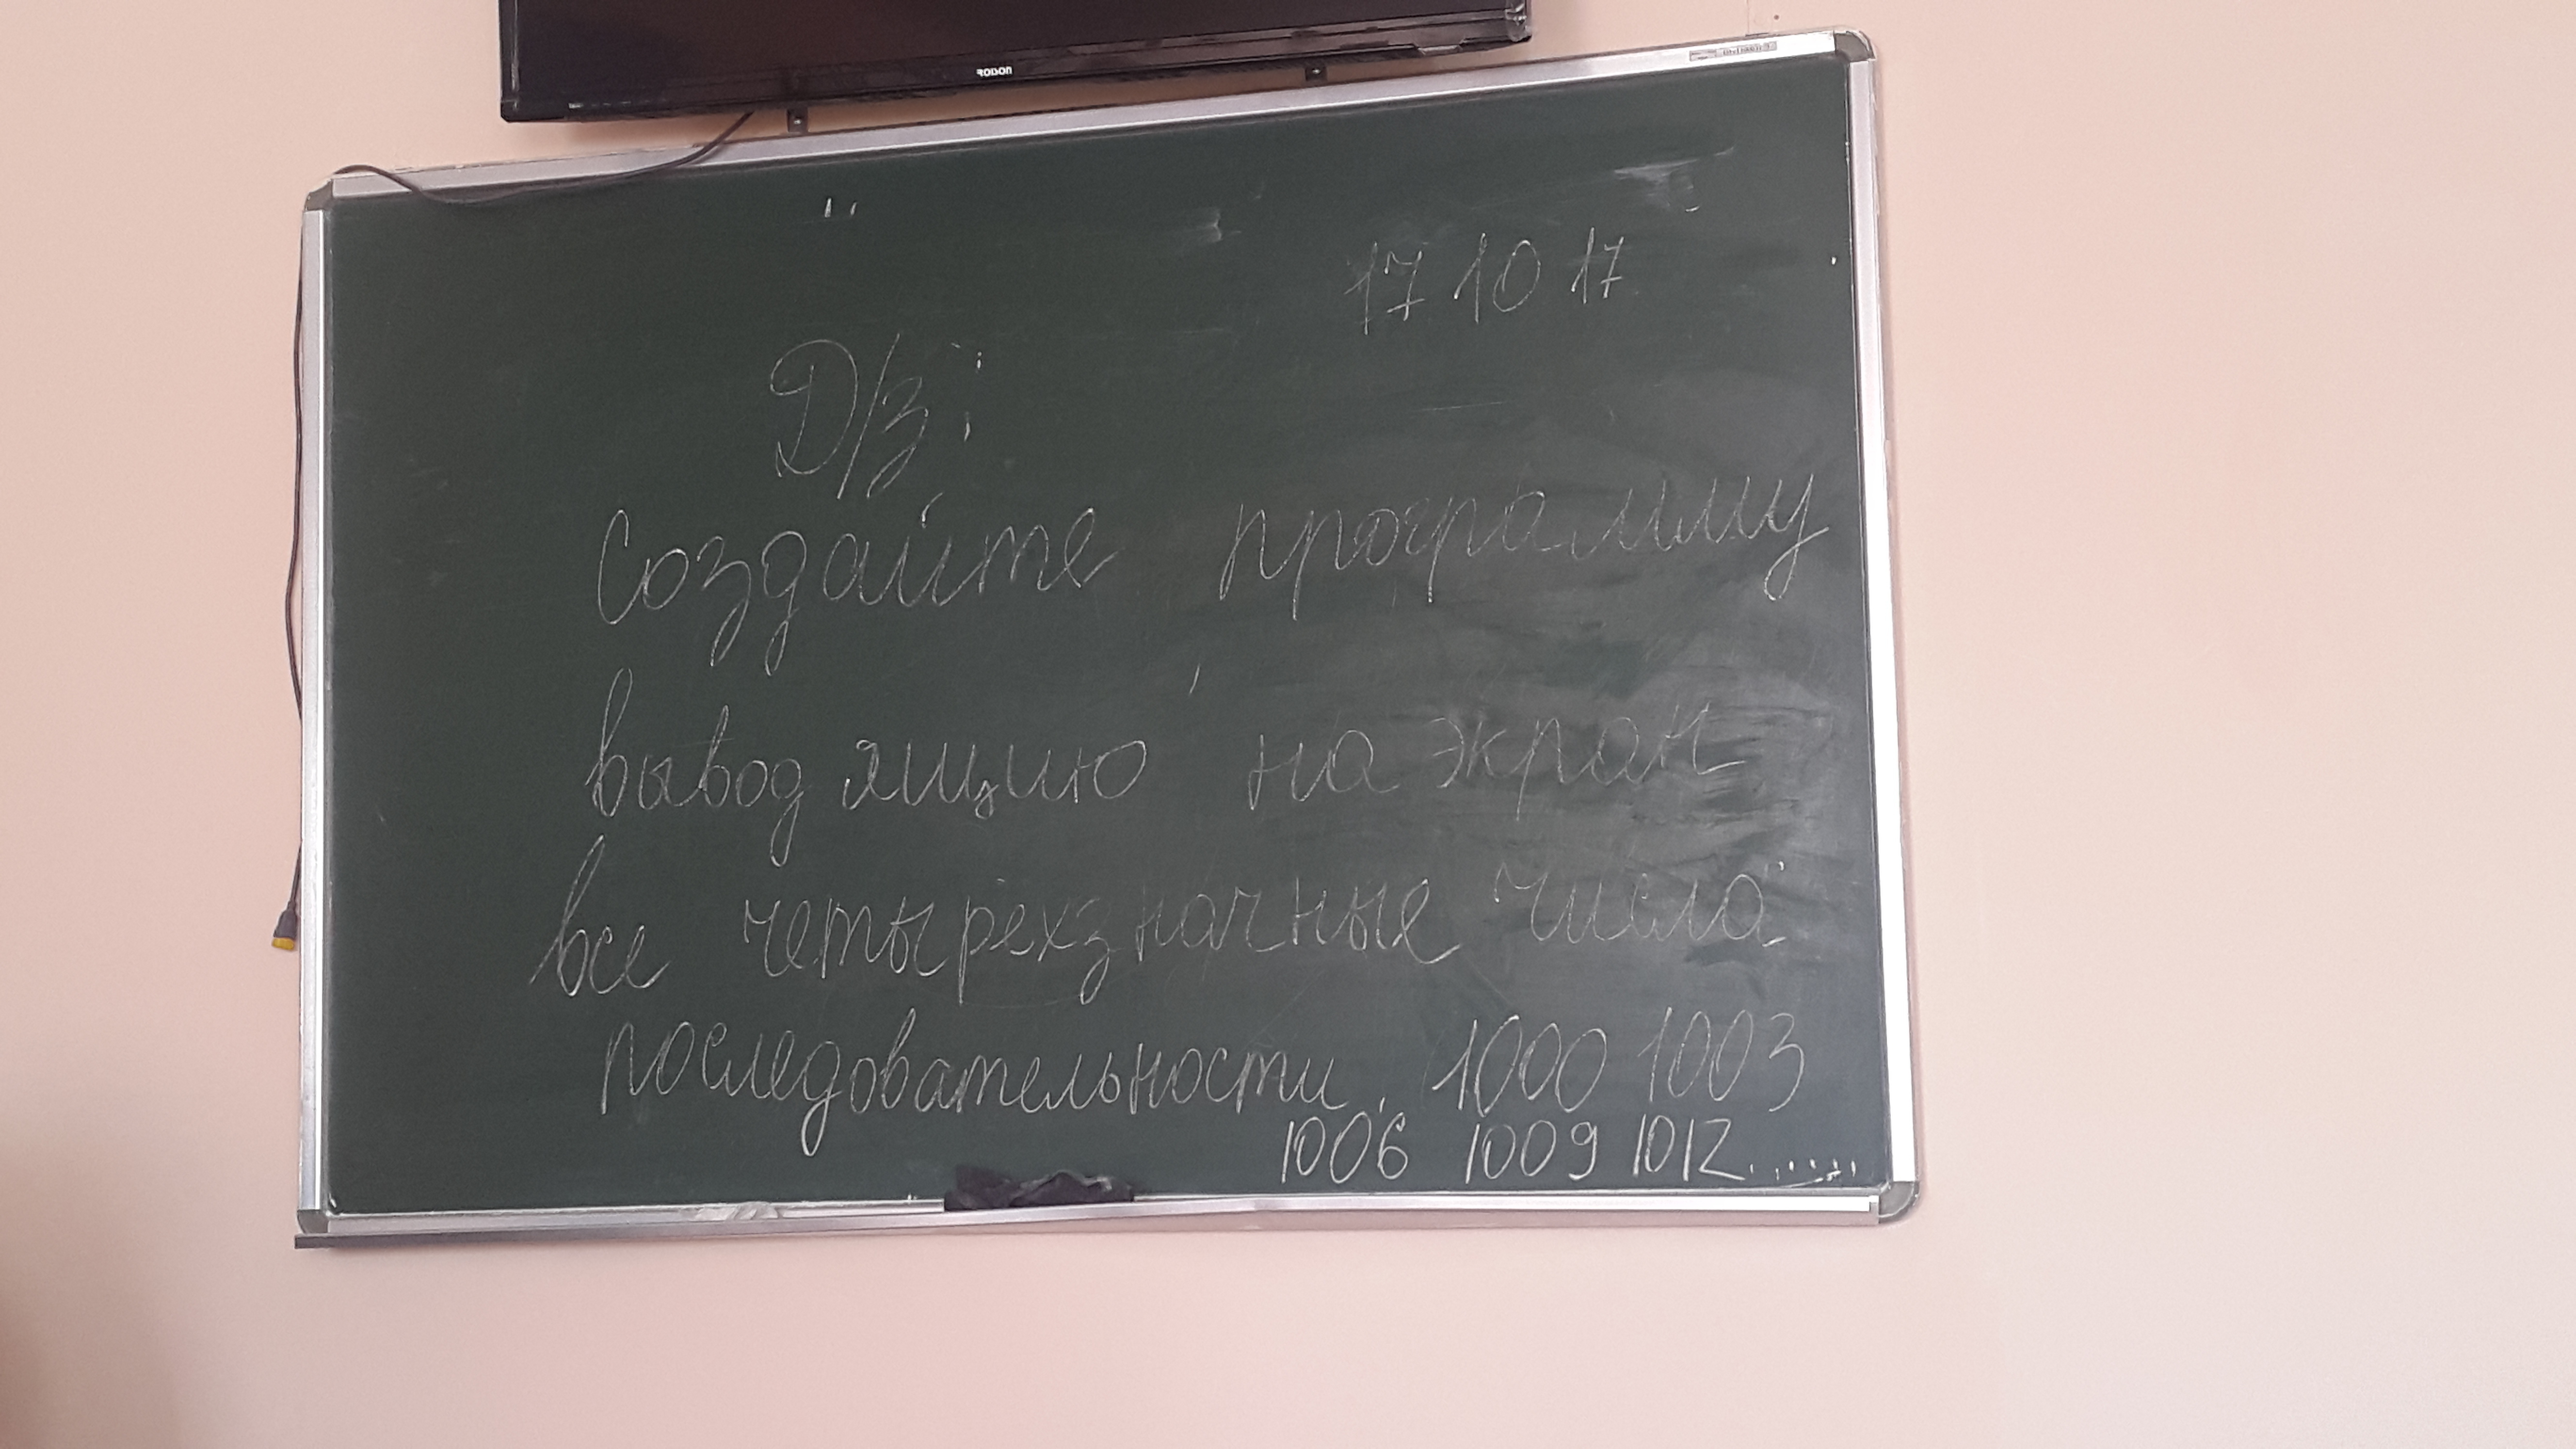 ROISON
17 10 17
Д/з:
Создайте программу
выводящую на экран
все четырехзначные числа
последовательности 1000 1003
1006 1009 1012.......